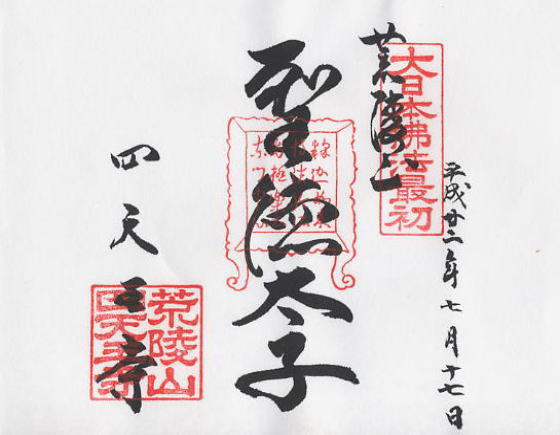 平成廿二年七月十七日
大日本佛法最初
荒陵山
聖徳太子
四天王寺
荒陵山
四天王寺